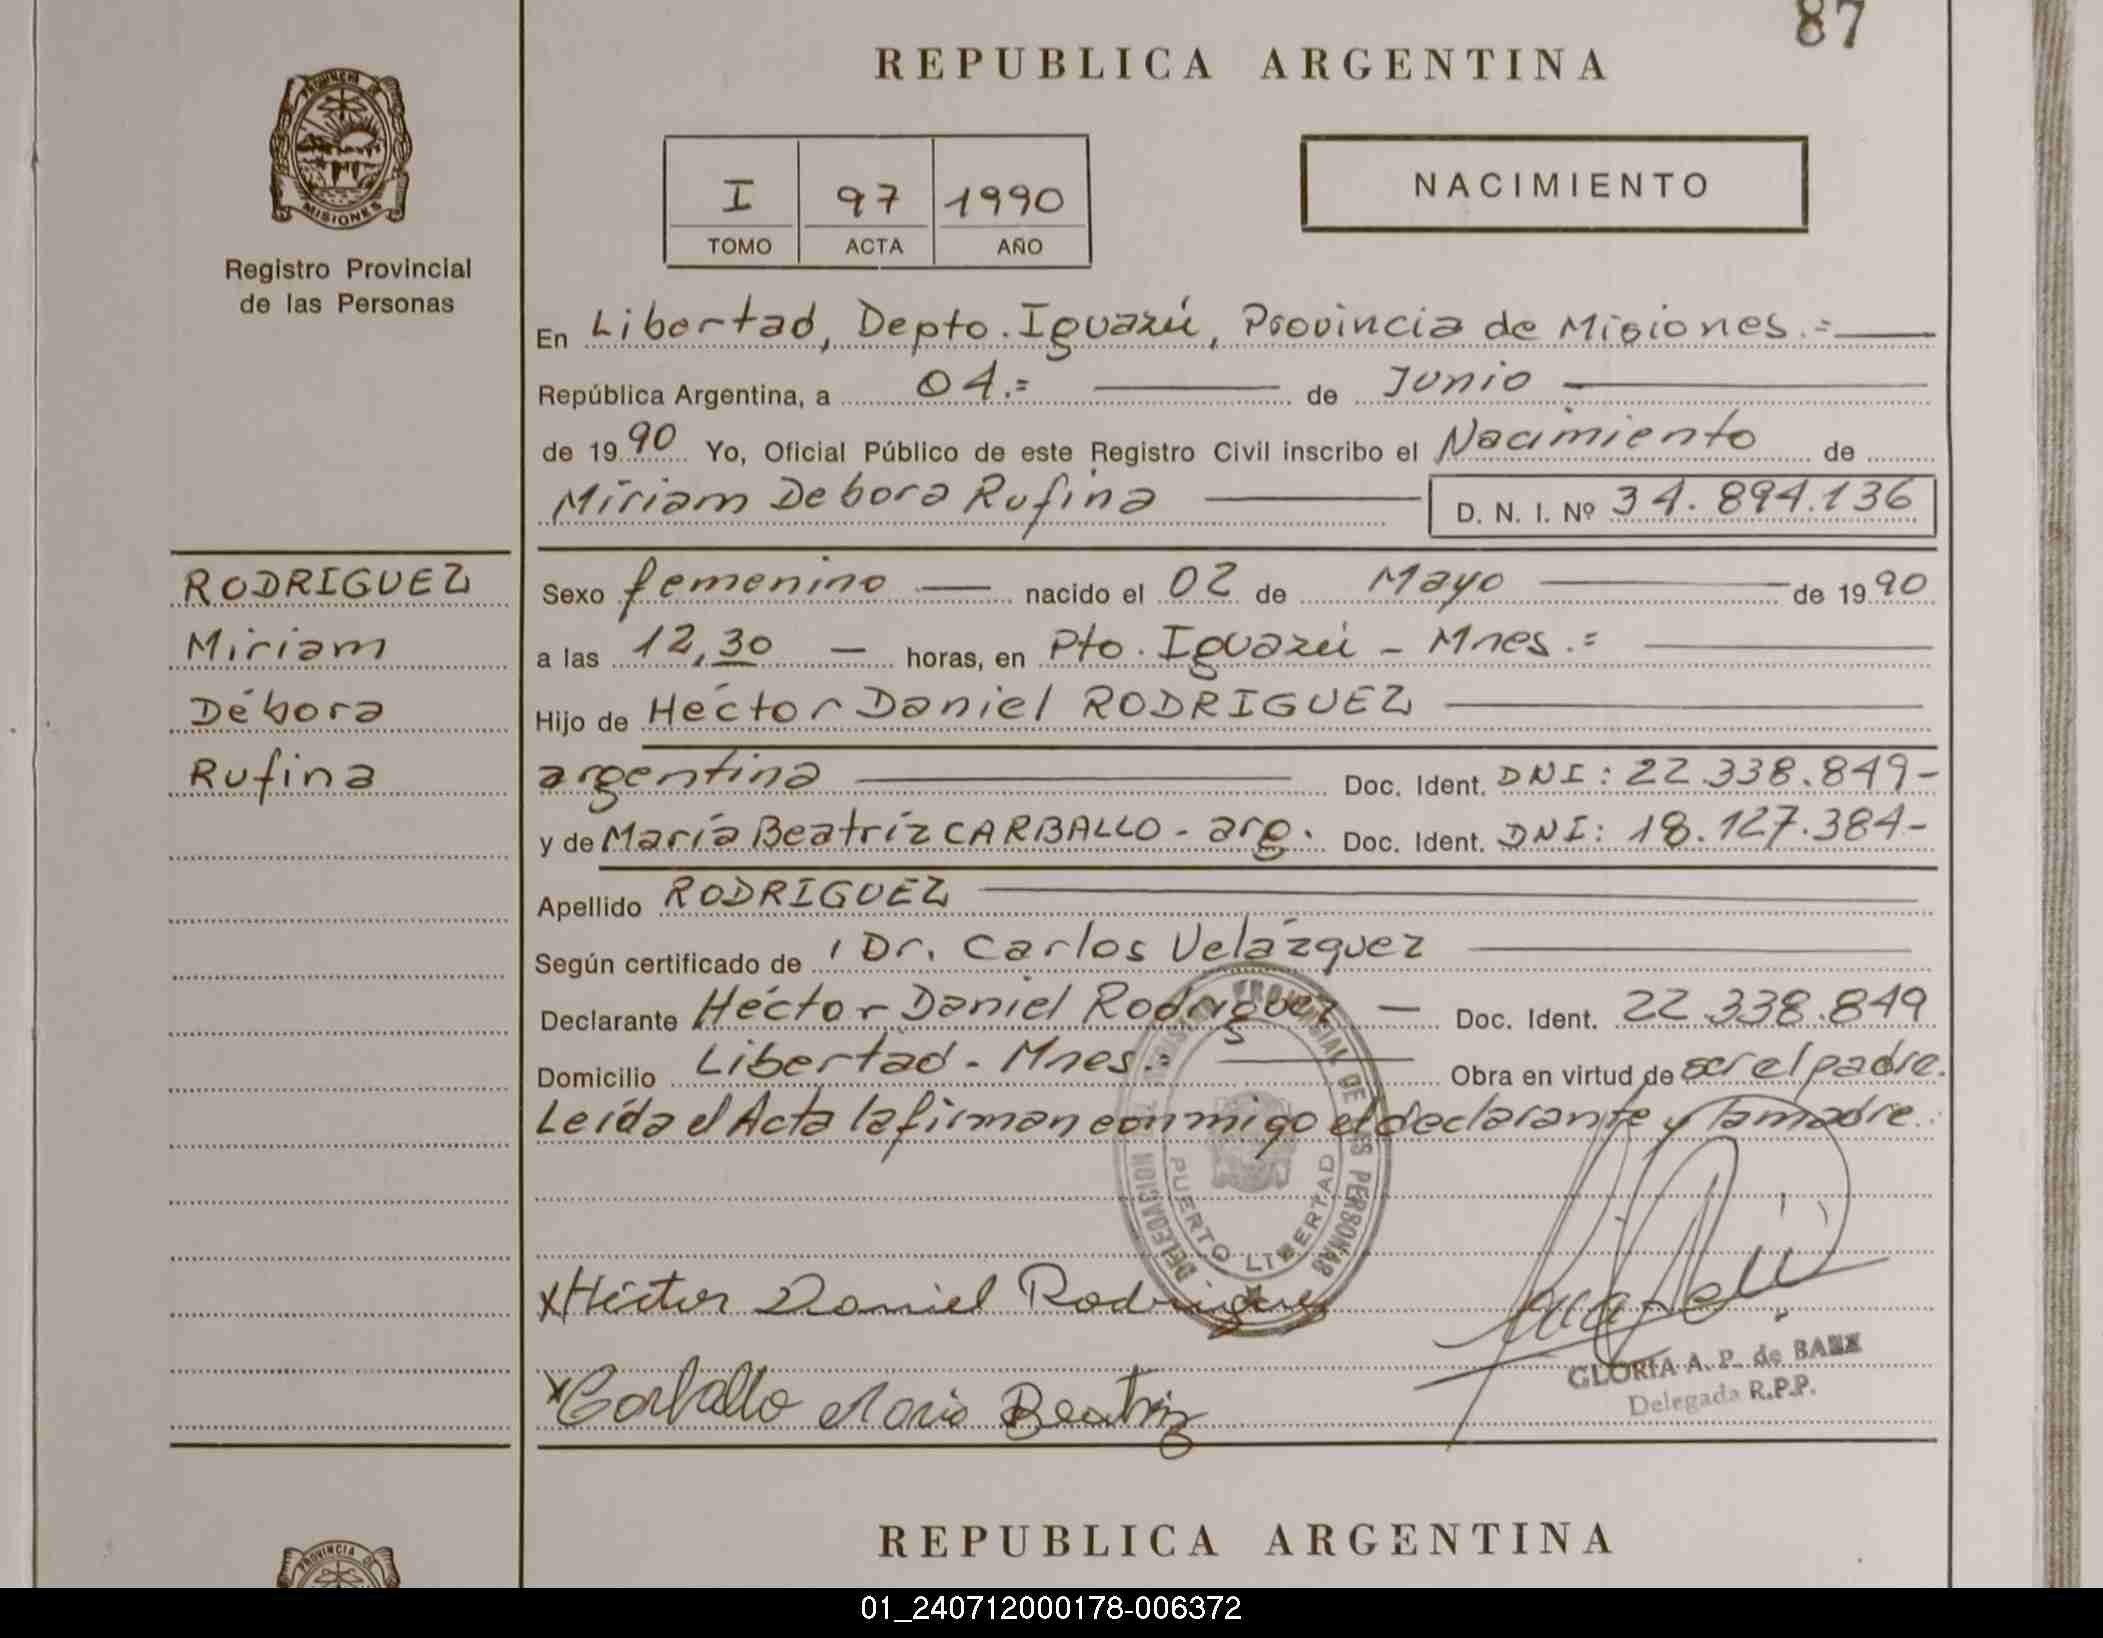 87
REPUBLICA ARGENTINA
PROVINCIA DE
MISIONES
Registro Provincial
de las Personas
I 97 1990
TOMO ACTA AÑO
NACIMIENTO
En Libertad, Depto. Iguazú, Provincia de Misiones.=
República Argentina, a 04.= de Junio
de 1990 Yo, Oficial Público de este Registro Civil inscribo el Nacimiento de
Miriam Debora Rufina D. N. I. Nº 34.894.136
RODRIGUEZ
Miriam
Débora
Rufina
Sexo femenino nacido el 02 de Mayo de 1990
a las 12,30 — horas, en Pto. Iguazú - Mnes.=
Hijo de Héctor Daniel RODRIGUEZ
argentina Doc. Ident. DNI: 22.338.849-
y de María Beatríz CARBALLO - arg. Doc. Ident. DNI: 18.127.384-
Apellido RODRIGUEZ
Según certificado de Dr. Carlos Velázquez
Declarante Héctor Daniel Rodríguez — Doc. Ident. 22.338.849
Domicilio Libertad - Mnes.= Obra en virtud de ser el padre.
Leída el Acta la firman conmigo el declarante y la madre.
DELEGACION PROVINCIAL DE LAS PERSONAS
PUERTO LIBERTAD
x Héctor Daniel Rodriguez
x Carballo Maria Beatriz
GLORIA A. P. de BAEZ
Delegada R.P.P.
REPUBLICA ARGENTINA
PROVINCIA DE
01_240712000178-006372